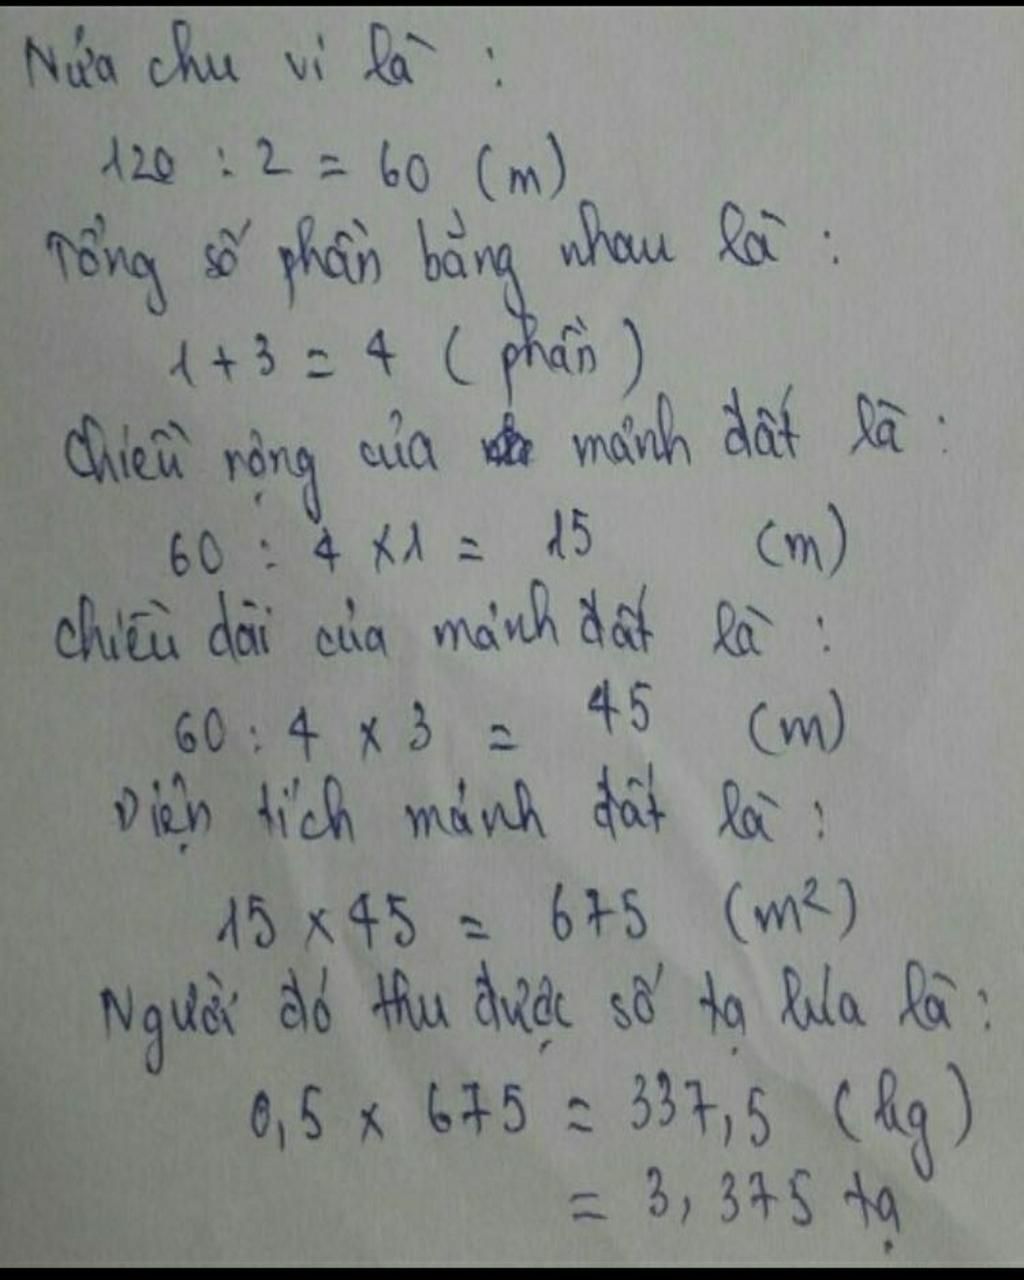 Nửa chu vi là :
120 : 2 = 60 (m)
Tổng số phần bằng nhau là :
1 + 3 = 4 ( phần )
Chiều rộng của mảnh đất là :
60 : 4 x 1 = 15 (m)
Chiều dài của mảnh đất là :
60 : 4 x 3 = 45 (m)
Diện tích mảnh đất là :
15 x 45 = 675 (m²)
Người đó thu được số tạ lúa là :
0,5 x 675 = 337,5 (kg)
= 3,375 tạ